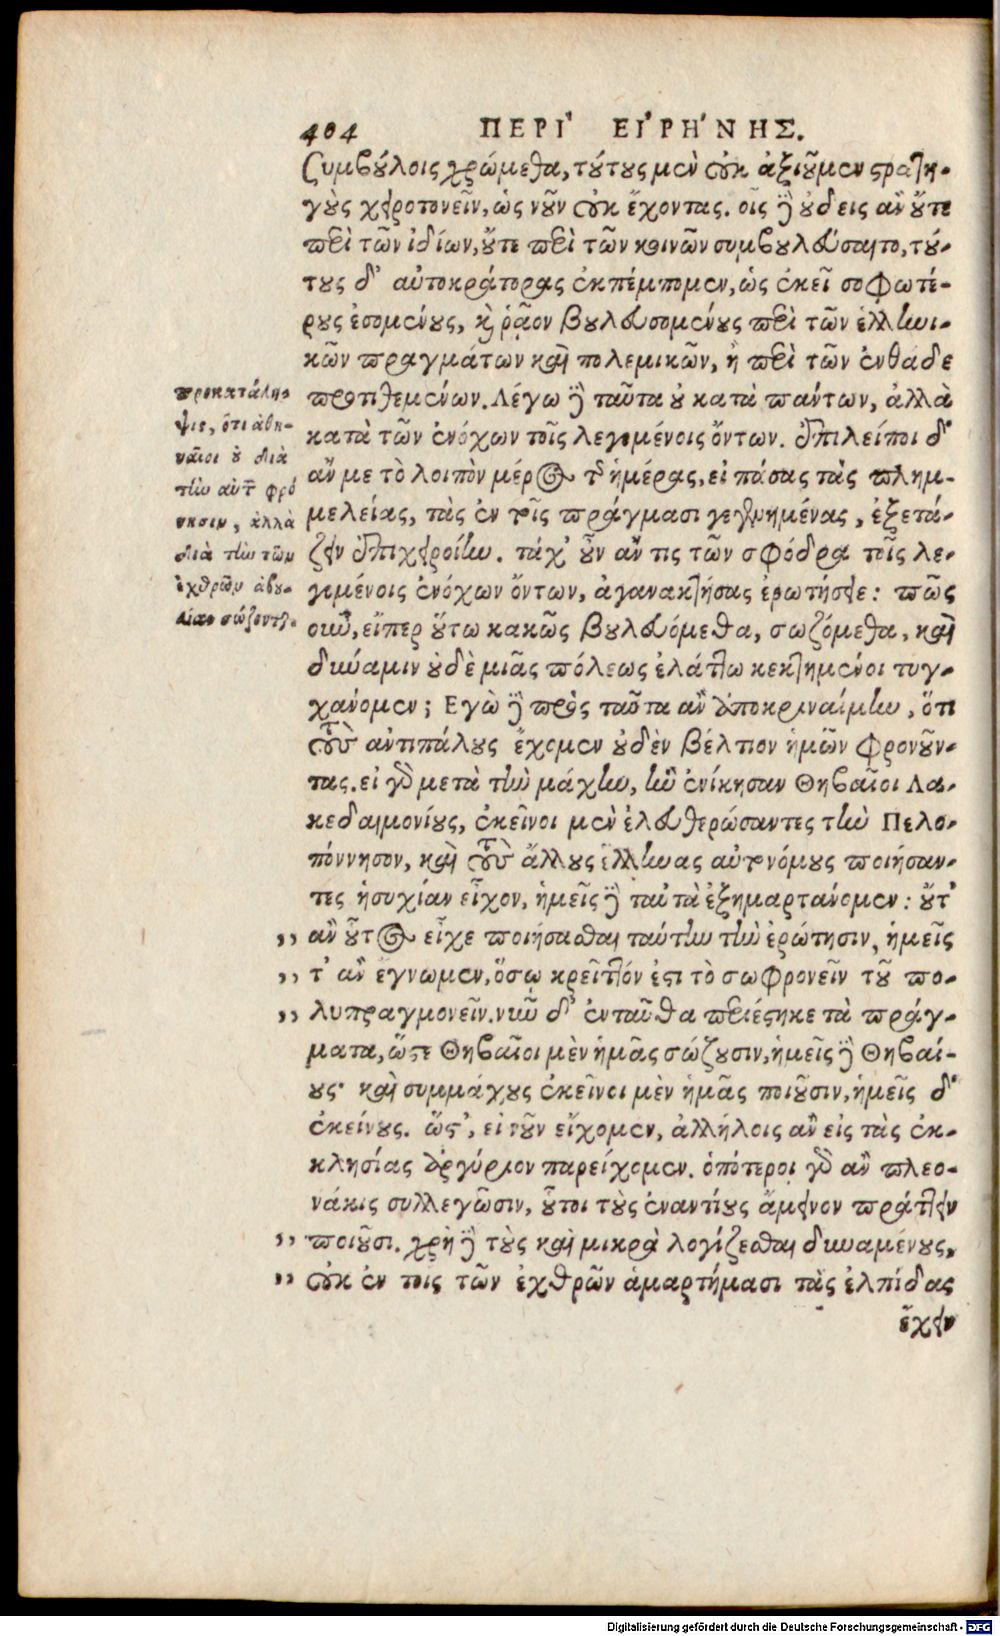 404 ΠΕΡΙ' ΕΙ'ΡΗ'ΝΗΣ.
ζυμβούλοις χρώμεθα, τούτους μὲν οὐκ ἀξιοῦμεν στρατη-
γοὺς χειροτονεῖν, ὡς νοῦν οὐκ ἔχοντας. οἷς δὲ οὐδεὶς ἂν οὔτε
περὶ τῶν ἰδίων, οὔτε περὶ τῶν κοινῶν συμβουλεύσαιτο, τού-
τους δ' αὐτοκράτορας ἐκπέμπομεν, ὡς ἐκεῖ σοφωτέ-
ρους ἐσομένους, καὶ ῥᾷον βουλευσομένους περὶ τῶν ἑλληνι-
κῶν πραγμάτων καὶ πολεμικῶν, ἢ περὶ τῶν ἐνθάδε
προτιθεμένων. Λέγω δὲ ταῦτα οὐ κατὰ πάντων, ἀλλὰ
κατὰ τῶν ἐνόχων τοῖς λεγομένοις ὄντων. ἐπιλείποι δ'
ἄν με τὸ λοιπὸν μέρος τῆς ἡμέρας, εἰ πάσας τὰς πλημ-
μελείας, τὰς ἐν τοῖς πράγμασι γεγενημένας, ἐξετά-
ζειν ἐπιχειροίην. τάχ' οὖν ἄν τις τῶν σφόδρα τοῖς λε-
γομένοις ἐνόχων ὄντων, ἀγανακτήσας ἐρωτήσειε: πῶς
οὖν, εἴπερ οὕτω κακῶς βουλευόμεθα, σωζόμεθα, καὶ
δύναμιν οὐδὲ μιᾶς πόλεως ἐλάττω κεκτημένοι τυγ-
χάνομεν; Εγὼ δὲ πρὸς ταῦτα ἂν ἀποκριναίμην, ὅτι
τοὺς ἀντιπάλους ἔχομεν οὐδὲν βέλτιον ἡμῶν φρονοῦν-
τας. εἰ γὰρ μετὰ τὴν μάχην, ἣν ἐνίκησαν Θηβαῖοι Λα-
κεδαιμονίους, ἐκεῖνοι μὲν ἐλευθερώσαντες τὴν Πελο-
πόννησον, καὶ τοὺς ἄλλους ἕλληνας αὐτονόμους ποιήσαν-
τες ἡσυχίαν εἶχον, ἡμεῖς δὲ ταὐτὰ ἐξημαρτάνομεν: οὔτ'
,, ἂν οὗτος εἶχε ποιήσασθαι ταύτην τὴν ἐρώτησιν, ἡμεῖς
,, τ' ἂν ἔγνωμεν, ὅσῳ κρεῖττόν ἐστι τὸ σωφρονεῖν τοῦ πο-
,, λυπραγμονεῖν. νῦν δ' ἐνταῦθα περιέστηκε τὰ πράγ-
ματα, ὥστε Θηβαῖοι μὲν ἡμᾶς σώζουσιν, ἡμεῖς δὲ Θηβαί-
ους· καὶ συμμάχους ἐκεῖνοι μὲν ἡμᾶς ποιοῦσιν, ἡμεῖς δ'
ἐκείνους. ὥστ', εἰ νοῦν εἴχομεν, ἀλλήλοις ἂν εἰς τὰς ἐκ-
κλησίας ἀργύριον παρείχομεν. ὁπότεροι γὰρ ἂν πλεο-
νάκις συλλεγῶσιν, οὗτοι τοὺς ἐναντίους ἄμεινον πράττειν
,, ποιοῦσι. χρὴ δὲ τοὺς καὶ μικρὰ λογίζεσθαι δυναμένους,
,, οὐκ ἐν τοῖς τῶν ἐχθρῶν ἁμαρτήμασι τὰς ἐλπίδας
ἔχειν
προκατάλη-
ψις, ὅτι ἀθη-
ναῖοι οὐ διὰ
τὴν αὑτῶν φρό
νησιν, ἀλλὰ
διὰ τὴν τῶν
ἐχθρῶν ἀβου-
λίαν σώζονται.
Digitalisierung gefördert durch die Deutsche Forschungsgemeinschaft - DFG